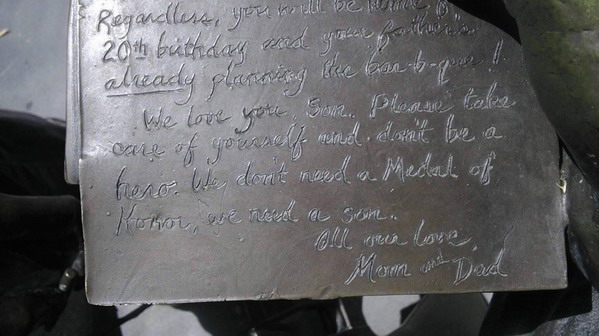 Regardless, you will be home
20th birthday and your father's
already planning the bar-b-que!
We love you, Son. Please take
care of yourself and don't be a
hero. We don't need a Medal of
Honor, we need a son.
All our love,
Mom and Dad